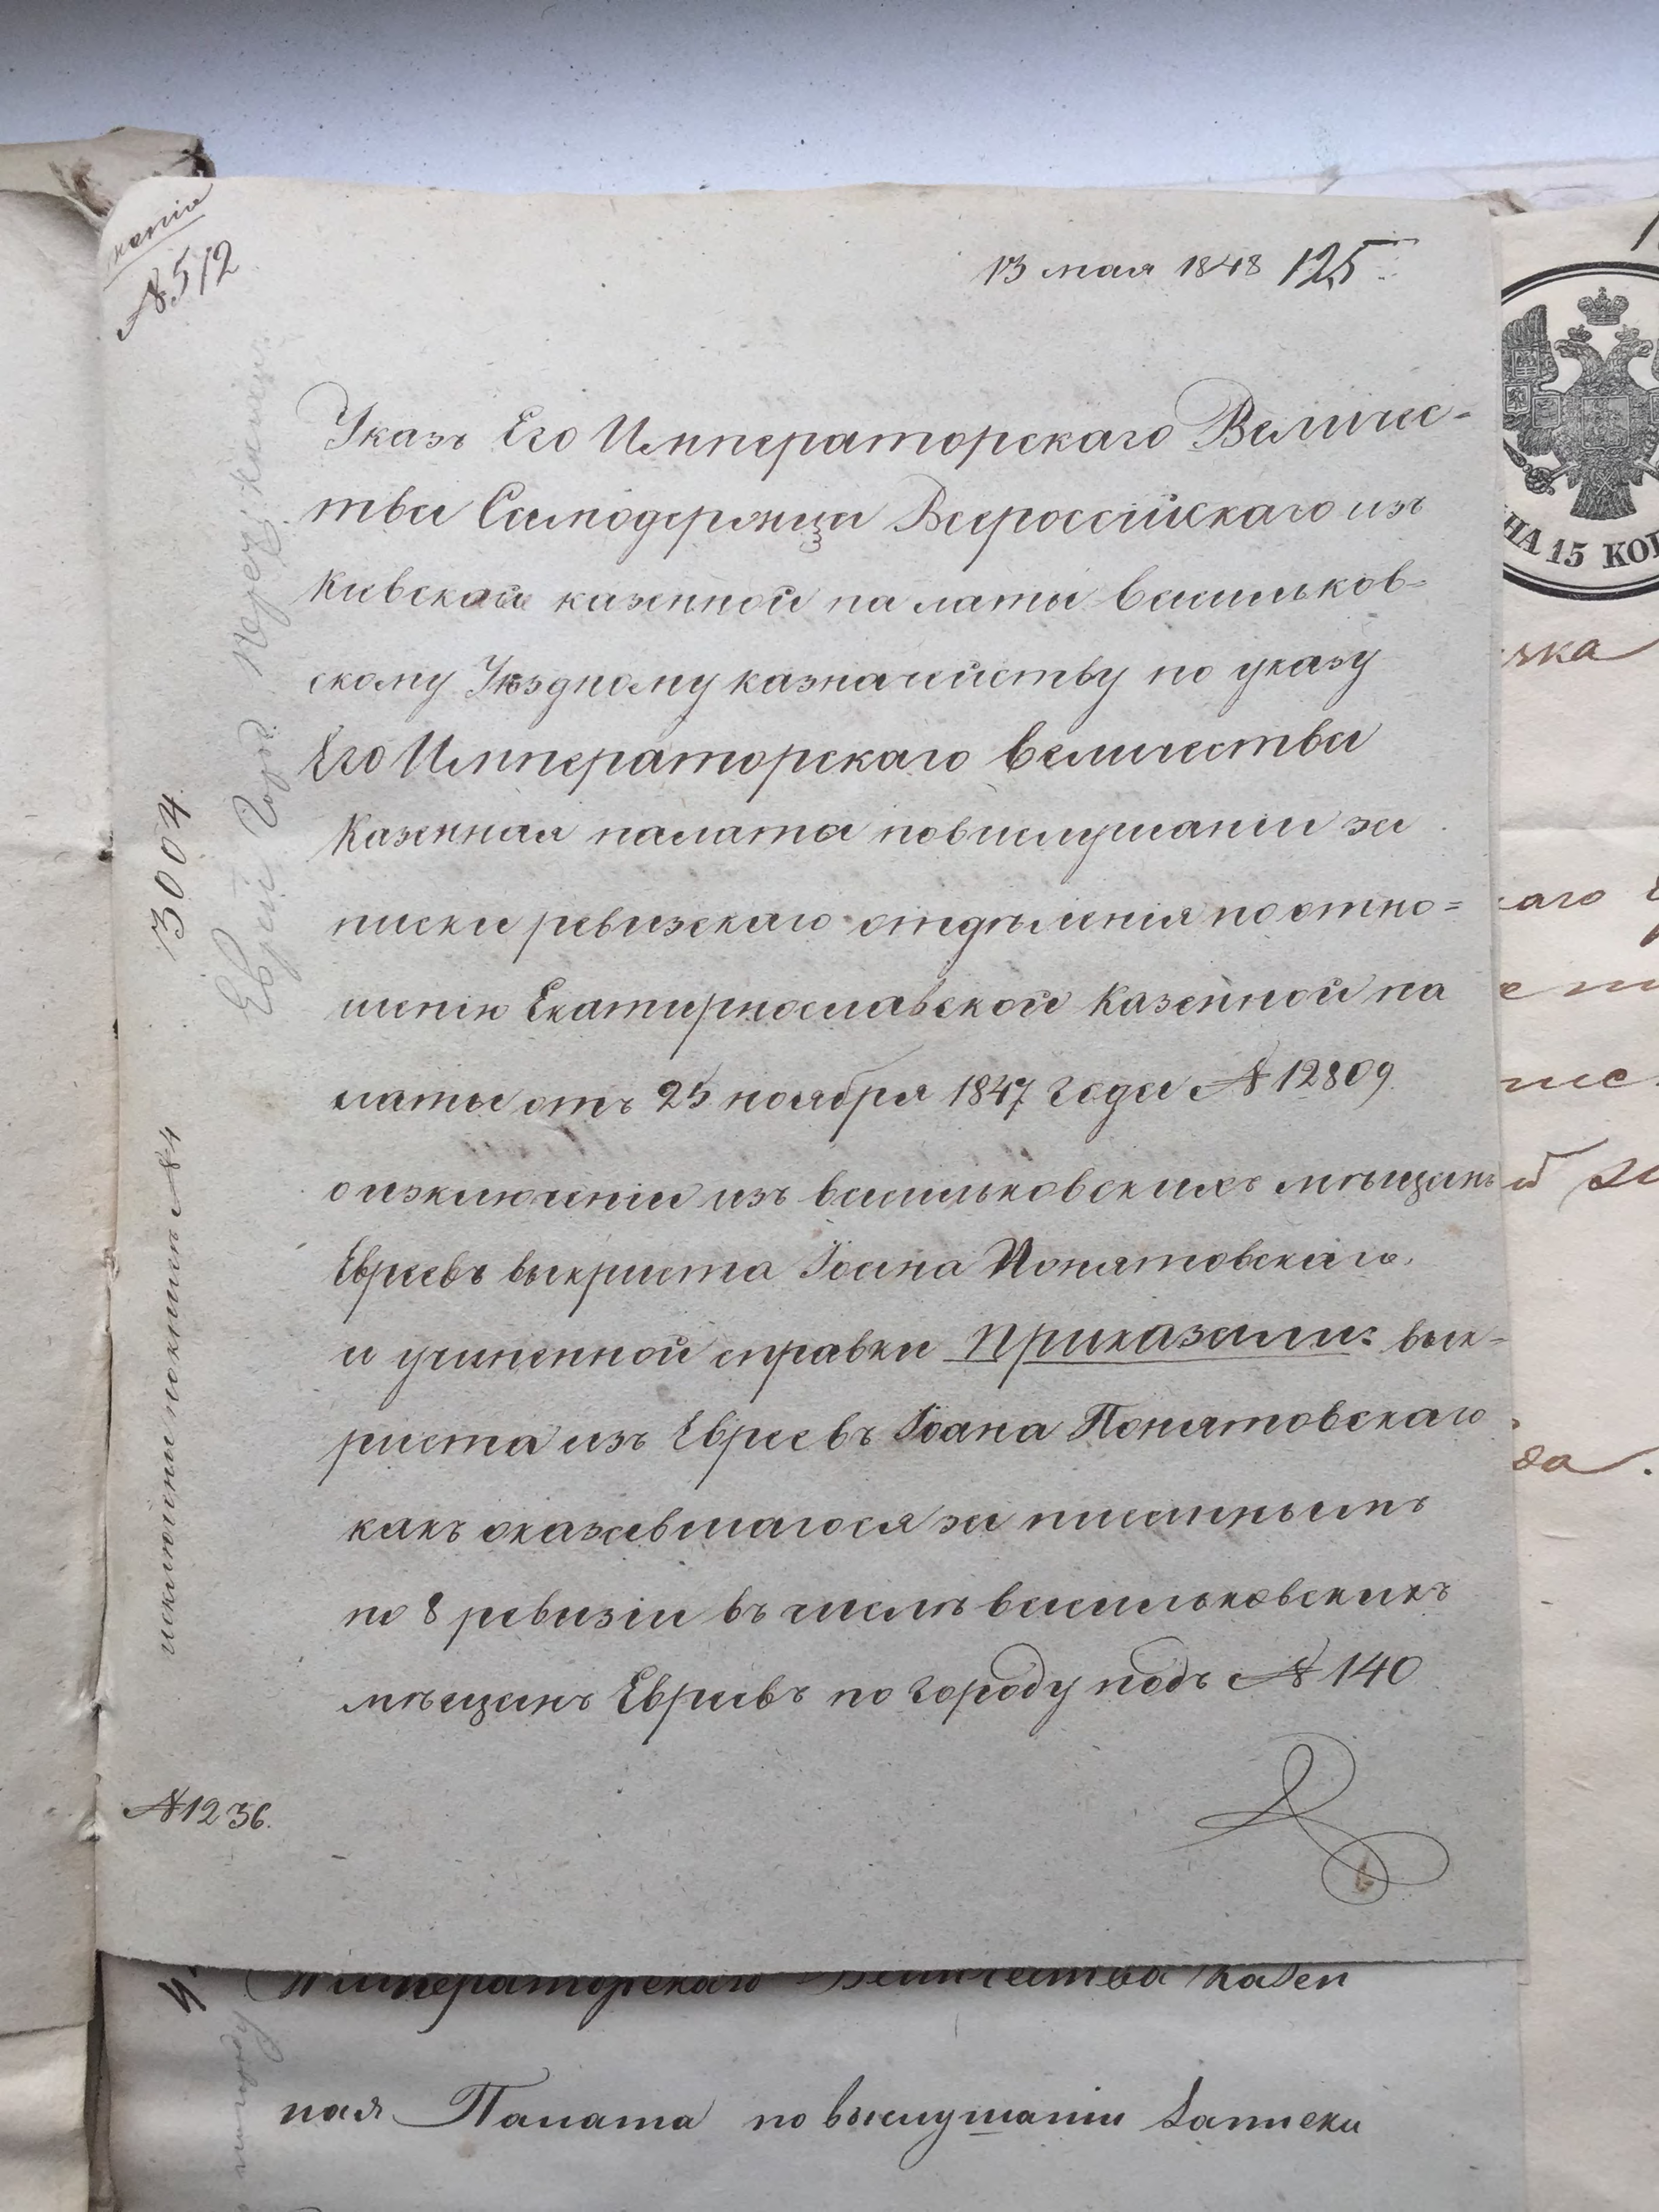 № 512
13 мая 1848 125
Указъ Его Императорскаго Величес=
тва Самодержца Всероссійскаго изъ
Кивской казенной палаты Васильков=
скому Уѣздному казначейству по указу
Его Императорскаго Величества
Казенная палата повислушаніи за
писки ревизскаго отдѣленія по отно=
шенію Екатеринославской Казенной па
латы отъ 25 ноября 1847 года № 12809
о изключеніи изъ васильковскихъ мѣщанъ
Евреевъ выкриста Іоана Понятовскаго.
и учиненной справки Приказали: вык=
риста изъ Евреевъ Іоана Понятовскаго
какъ оказавшагося за писаннымъ
по 8 ревизіи въ числѣ васильковскихъ
мѣщанъ Евреевъ по городу подъ № 140
3004
Евреи Гор.
№ 1236.
Императорскаго Величества Казен
ная Палата по выслушаніи Записки
НА 15 КОП
аго
да.